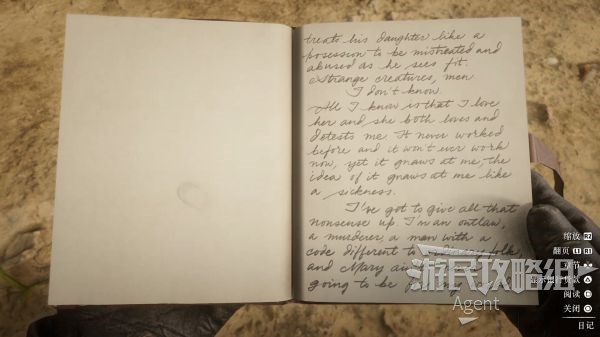 treats his daughter like a
posession to be mistreated and
abused as he sees fit.
Strange creatures, men
I don't know.
All I know is that I love
her and she both loves and
detests me. It never worked
before and it won't ever work
now, yet it gnaws at me, the
idea of it gnaws at me like
a sickness.
I've got to give all that
nonsense up. I'm an outlaw,
a murderer, a man with a
code different to
and Mary
going to be
缩放 R2
翻页 L1 R1
阅读
关闭
日记
游民攻略组
Agent